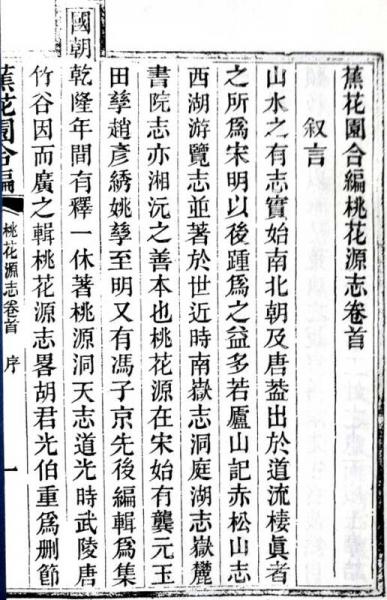 蕉花園合編桃花源志卷首
叙言
山水之有志實始南北朝及唐葢出於道流棲眞者
之所爲宋明以後踵爲之益多若廬山記赤松山志
西湖游覽志並著於世近時南嶽志洞庭湖志嶽麓
書院志亦湘沅之善本也桃花源在宋始有龔元玉
田孳趙彥綉姚孳至明又有馮子京先後編輯爲集
國朝乾隆年間有釋一休著桃源洞天志道光時武陵唐
竹谷因而廣之輯桃花源志畧胡君光伯重爲删節
蕉花園合編 桃花源志卷首 序 一